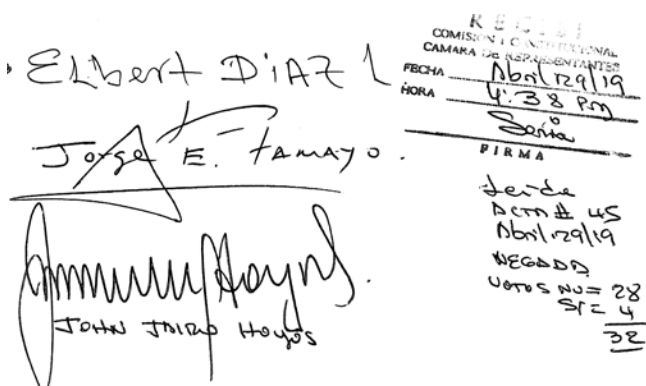 ELbert DiAZ L
Jorge E. TAMAYO.
JOHN JAIRO HOYOS
RECIBI
COMISION I CONSTITUCIONAL
CAMARA DE REPRESENTANTES
FECHA Abril 29/19
HORA 4:38 Pm
FIRMA
Leida
ACTA # 45
Abril 29/19
NEGADA
VOTOS NO = 28
SI = 4
32